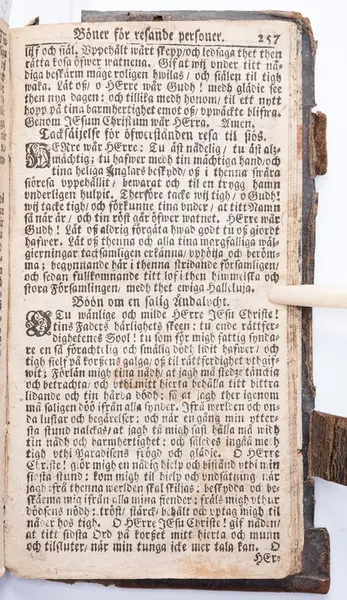 Böner för resande personer. 257
liff och siäl. Uppehålt wårt skepp/och ledsaga thet then
rätta kosa öfwer watnena. Gif at wij under titt nå-
diga beskärm mage roligen hwilas/ och siälen til tigh
waka. Låt oß/ o HErre wår Gudh! medh glädie see
then nya dagen: och tillika medh honom/ til ett nytt
hopp på tina barmhertighet emot oß/ upwäckte blifwa.
Genom JEsum Christum wår HErra. Amen.
Tacksäijelse för öfwerstånden resa til siös.
HErre wår HErre: Tu äst nådelig/ tu äst alz-
mächtig; tu hafwer medh tin mächtiga hand/och
tina heliga Änglars beskydd/ oß i thenna swåra
siöresa uppehållit/ bewarat och til en trygg hamn
underligen hulpit. Therföre tacke wij tigh/ o Gudh!
wij tacke tigh/ och förkunne tina under/ at titt Namn
så när är/ och tin röst går öfwer watnet. HErre wår
Gudh! Låt oß aldrig förgäta hwad godt tu oß giordt
hafwer. Låt oß thenna och alla tina margfalliga wäl-
gierningar tacksamligen erkänna/ uphöija och beröm-
ma; begynnande här i thenna stridande församligen/
och sedan fullkomnande titt lof i then himmelska och
stora Församlingen/ medh thet ewiga Halleluja.
Böön om en salig Andalycht.
O Tu wänlige och milde HErre JEsu Christe!
tins Faders härlighets skeen; tu ende rättfer-
dighetenes Sool! tu som för migh fattig synda-
re en så förachtelig och smälig dödh lidit hafwer/ och
tigh sielf på korßens galga/ oß til rättferdighet uthgif-
wit; Förlän migh tina nådh/ at jagh må stedze täncia
och betrachta/ och uthi mitt hierta behålla titt bittra
lidande och tin hårda dödh: så at jagh ther igenom
må saligen döö ifrån alla synder. Ifrå werlden och on-
da lustar och begärelser: och när en gång min ytter-
sta stund nalkas/at jagh tå migh fast hålla må widh
tin nådh och barmhertighet; och således ingåå medh
tigh uthi Paradisens frögd och glädie. O HErre
Christe! giör migh en nådig hielp och bistånd uthi min
sidsta stund: kom migh til hielp och undsätning när
jagh frå thenna werlden skal skilias: beskydda och be-
skärma mig ifrån alla mina fiender: fräls migh uthur
dödsens nödh: tröst/ stärck/ behålt och uptag migh til
nåder hos tigh. O HErre JEsu Christe! gif nåden/
at titt sidsta Ord på korßet mitt hierta och munn
och tilsluter/ när min tunga icke mer tala kan. O
HEr-